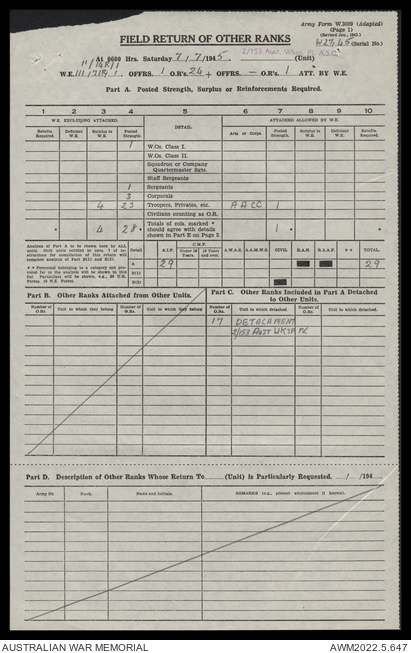 Army Form W.3009 (Adapted)
(Page 1)
(Revised Jan., 1943.)
W27/45 (Serial No.)
FIELD RETURN OF OTHER RANKS
At 0600 Hrs. Saturday 7/7/1945. 2/153 Aust. Wksp. Pl. A.S.C. (Unit)
W.E. OFFRS. 1 O.R's. 24 + OFFRS. — O.R's. 1 ATT. BY W.E.
Part A. Posted Strength, Surplus or Reinforcements Required.
1 2 3 4 5 6 7 8 9 10
W.E. EXCLUDING ATTACHED. DETAIL ATTACHED ALLOWED BY W.E.
Reinfts. Required. Deficient W.E. Surplus to W.E. Posted Strength. Arm or Corps. Posted Strength. Deficient W.E. Surplus to W.E. Reinfts. Required.
1 W.Os. Class I.
W.Os. Class II.
Squadron or Company
Quartermaster Sgts.
Staff Sergeants
1 Sergeants
3 Corporals
4 23 Troopers, Privates, etc. AACC 1
Civilians counting as O.R.
* 4 28 * Totals of cols. marked * should agree with details shown in Part E on Page 2 1 *
Analysis of Part A to be shown here by ALL units. Only units entitled to
Detail A.I.F. C.M.F. Under 19 Years. 19 Years and over. A.W.A.S. A.A.M.W.S. CIVIL R.A.N. R.A.A.F. * * TOTAL.
A 29 29
B(1)
B(2)
Part B. Other Ranks Attached from Other Units.
Part C. Other Ranks Included in Part A Detached
to Other Units.
Number of O.Rs. Unit to which they belong Number of O.Rs. Unit to which they belong Number of O.Rs. Unit to which detached. Number of O.Rs. Unit to which detached.
17 DETACHMENT
2/153 AUST WKSP PL
Part D. Description of Other Ranks Whose Return To (Unit) is Particularly Requested. / /194
Army No Rank. Name and Initials. REMARKS (e.g., present whereabouts if known).
AUSTRALIAN WAR MEMORIAL AWM2022.5.647